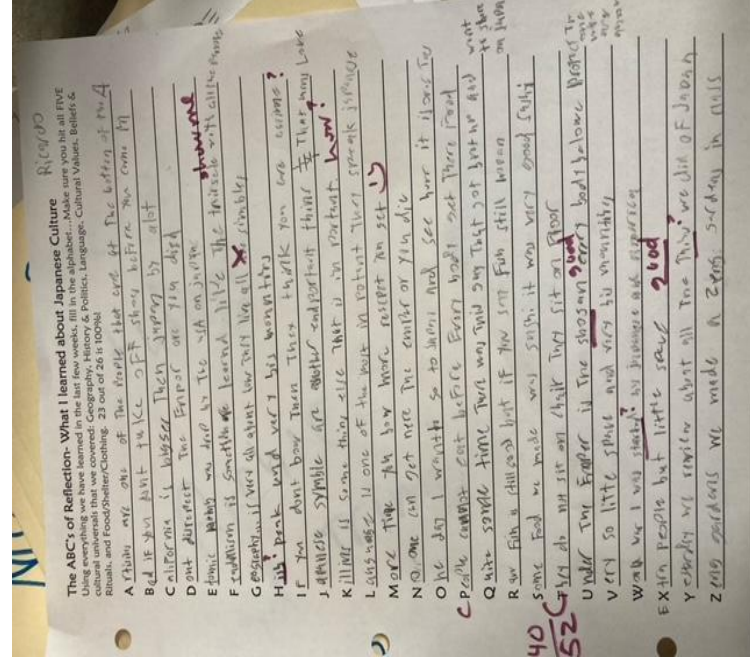 Ricardo
The ABC's of Reflection- What I learned about Japanese Culture
Using everything we have learned in the last few weeks, fill in the alphabet...Make sure you hit all FIVE
cultural universals that we covered: Geography, History & Politics, Language, Cultural Values, Beliefs &
Rituals, and Food/Shelter/Clothing. 23 out of 26 is 100%!
Artisins are one of the People that are at the bottem of the
Bad if you dont take off shoes before you come in
California is bigger Then Japan by alot
Dont disrespect The Empor or you died
Etomic was drop by The USA on Japan
show me
Feudalism is something we learned like The triangle with all the
Geography is very all about how they live all simble
High? Peak and very big mountins
If you dont bow Then They think you are
Japanese symble are another important thing That many Love
Killing is some thing else that is important. how?
Language is one of the most in Potant They speak Japanese
More Time you bow more respect you get
No, one can get nere The emper or you die
One day I want to go to Japan and see how it is
People cannot eat before Every body get There Food
Quite some time There was This guy That got and
Raw Fish is still good but if you say Fish still
Some Food we made was sushi it was very good sushi
They do not sit on chair They sit on Floor
Under The Emper is The shogun every body below
good
Very so little space and very big mountins
40
52
Was
EXtra people but little space good
Yesterday we review about all The This? we did OF Japan
Zeng gardens we made a Zeng garden in class